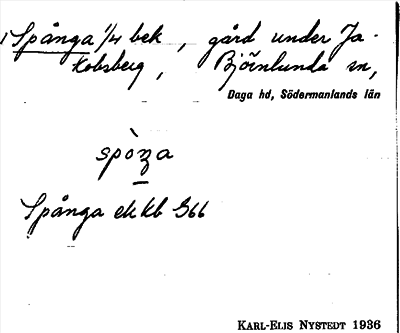 Spånga 1/4 bek, gård under Ja-
kobsberg, Björnlunda sn,
Daga hd, Södermanlands län
Spånga ek kb S66
KARL-ELIS NYSTEDT 1936